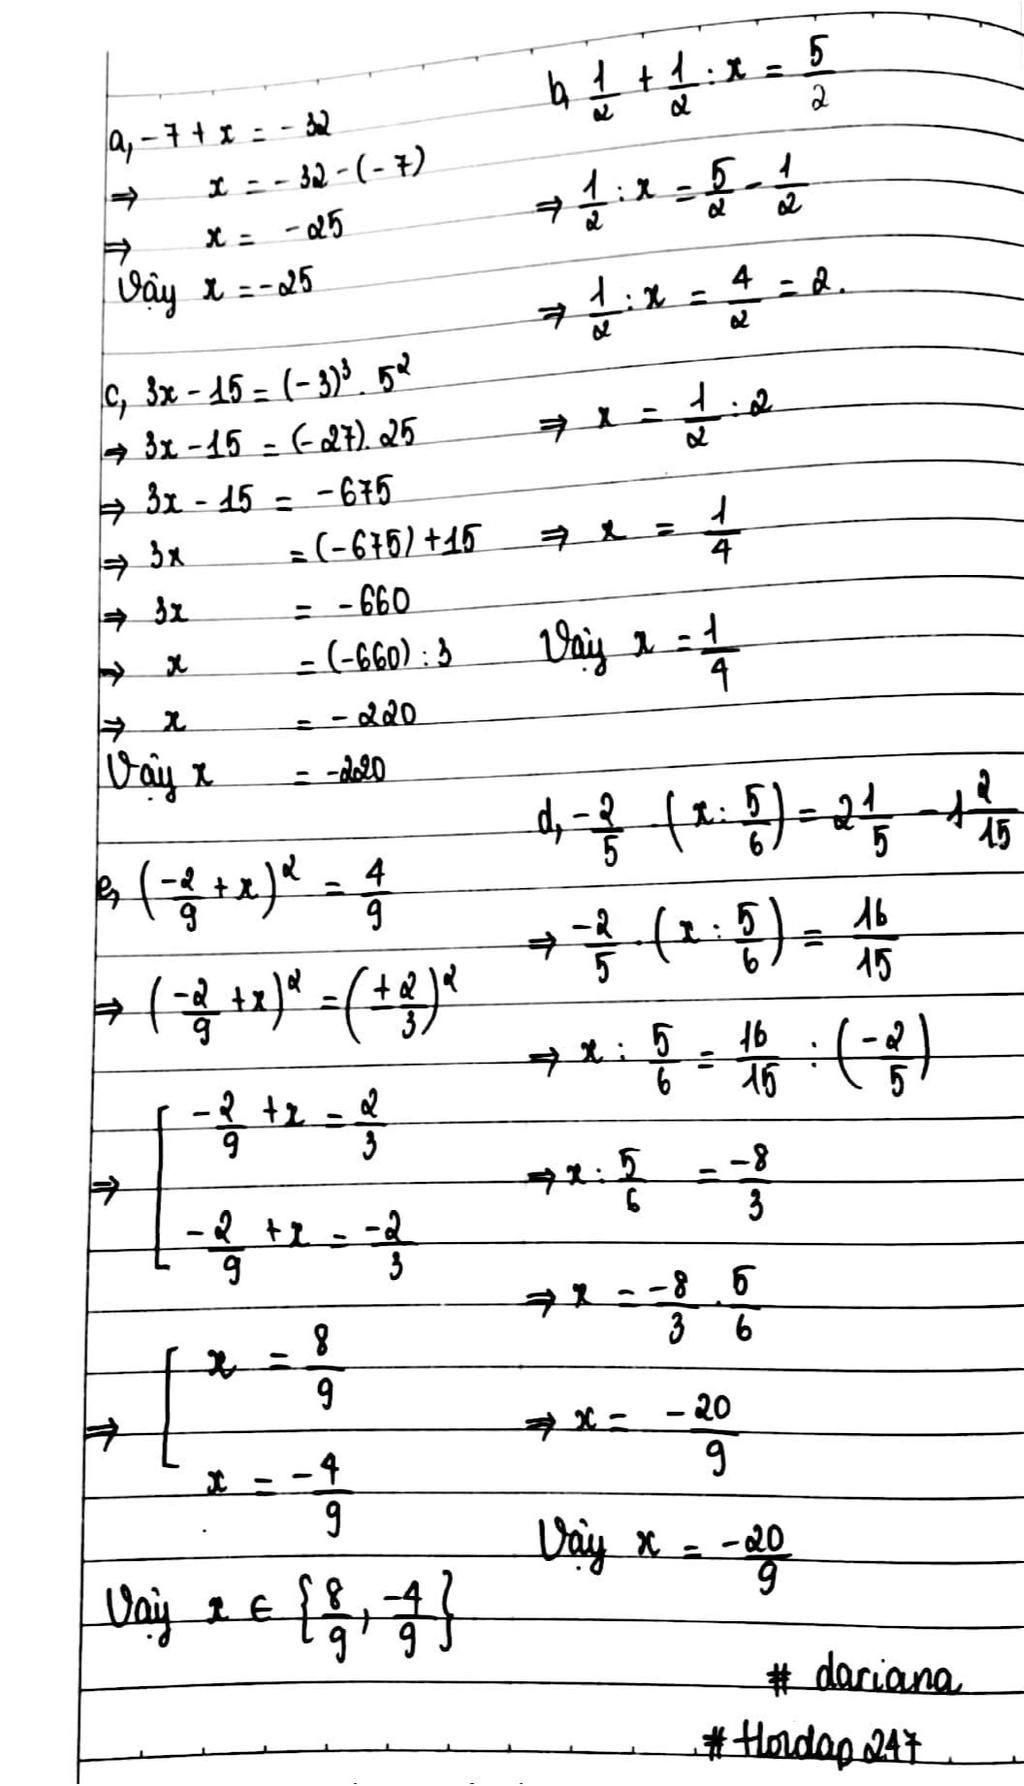 a, -7 + x = -32
⇒ x = -32 - (-7)
⇒ x = -25
Vậy x = -25
b, 1/2 + 1/2 : x = 5/2
⇒ 1/2 : x = 5/2 - 1/2
⇒ 1/2 : x = 4/2 = 2.
⇒ x = 1/2 : 2
⇒ x = 1/4
Vậy x = 1/4
c, 3x - 15 = (-3)³ . 5²
⇒ 3x - 15 = (-27). 25
⇒ 3x - 15 = -675
⇒ 3x = (-675) + 15
⇒ 3x = -660
⇒ x = (-660) : 3
⇒ x = -220
Vậy x = -220
d, -2/5 . (x : 5/6) = 2 1/5 - 1 2/15
⇒ -2/5 . (x : 5/6) = 16/15
⇒ x : 5/6 = 16/15 : (-2/5)
⇒ x : 5/6 = -8/3
⇒ x = -8/3 . 5/6
⇒ x = -20/9
Vậy x = -20/9
e, (-2/9 + x)² = 4/9
⇒ (-2/9 + x)² = (±2/3)²
⇒ [ -2/9 + x = 2/3
-2/9 + x = -2/3
⇒ [ x = 8/9
x = -4/9
Vậy x ∈ {8/9, -4/9}
# dariana
# Hoidap 247